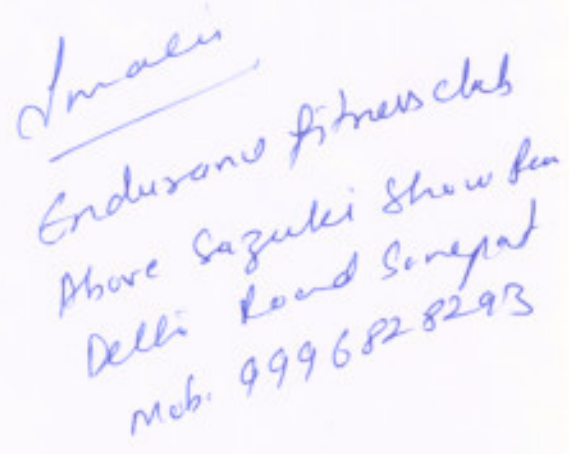 Endurano fitness club
Above Sazuki Show
Delhi Road Sonepat
Mob. 9996828293